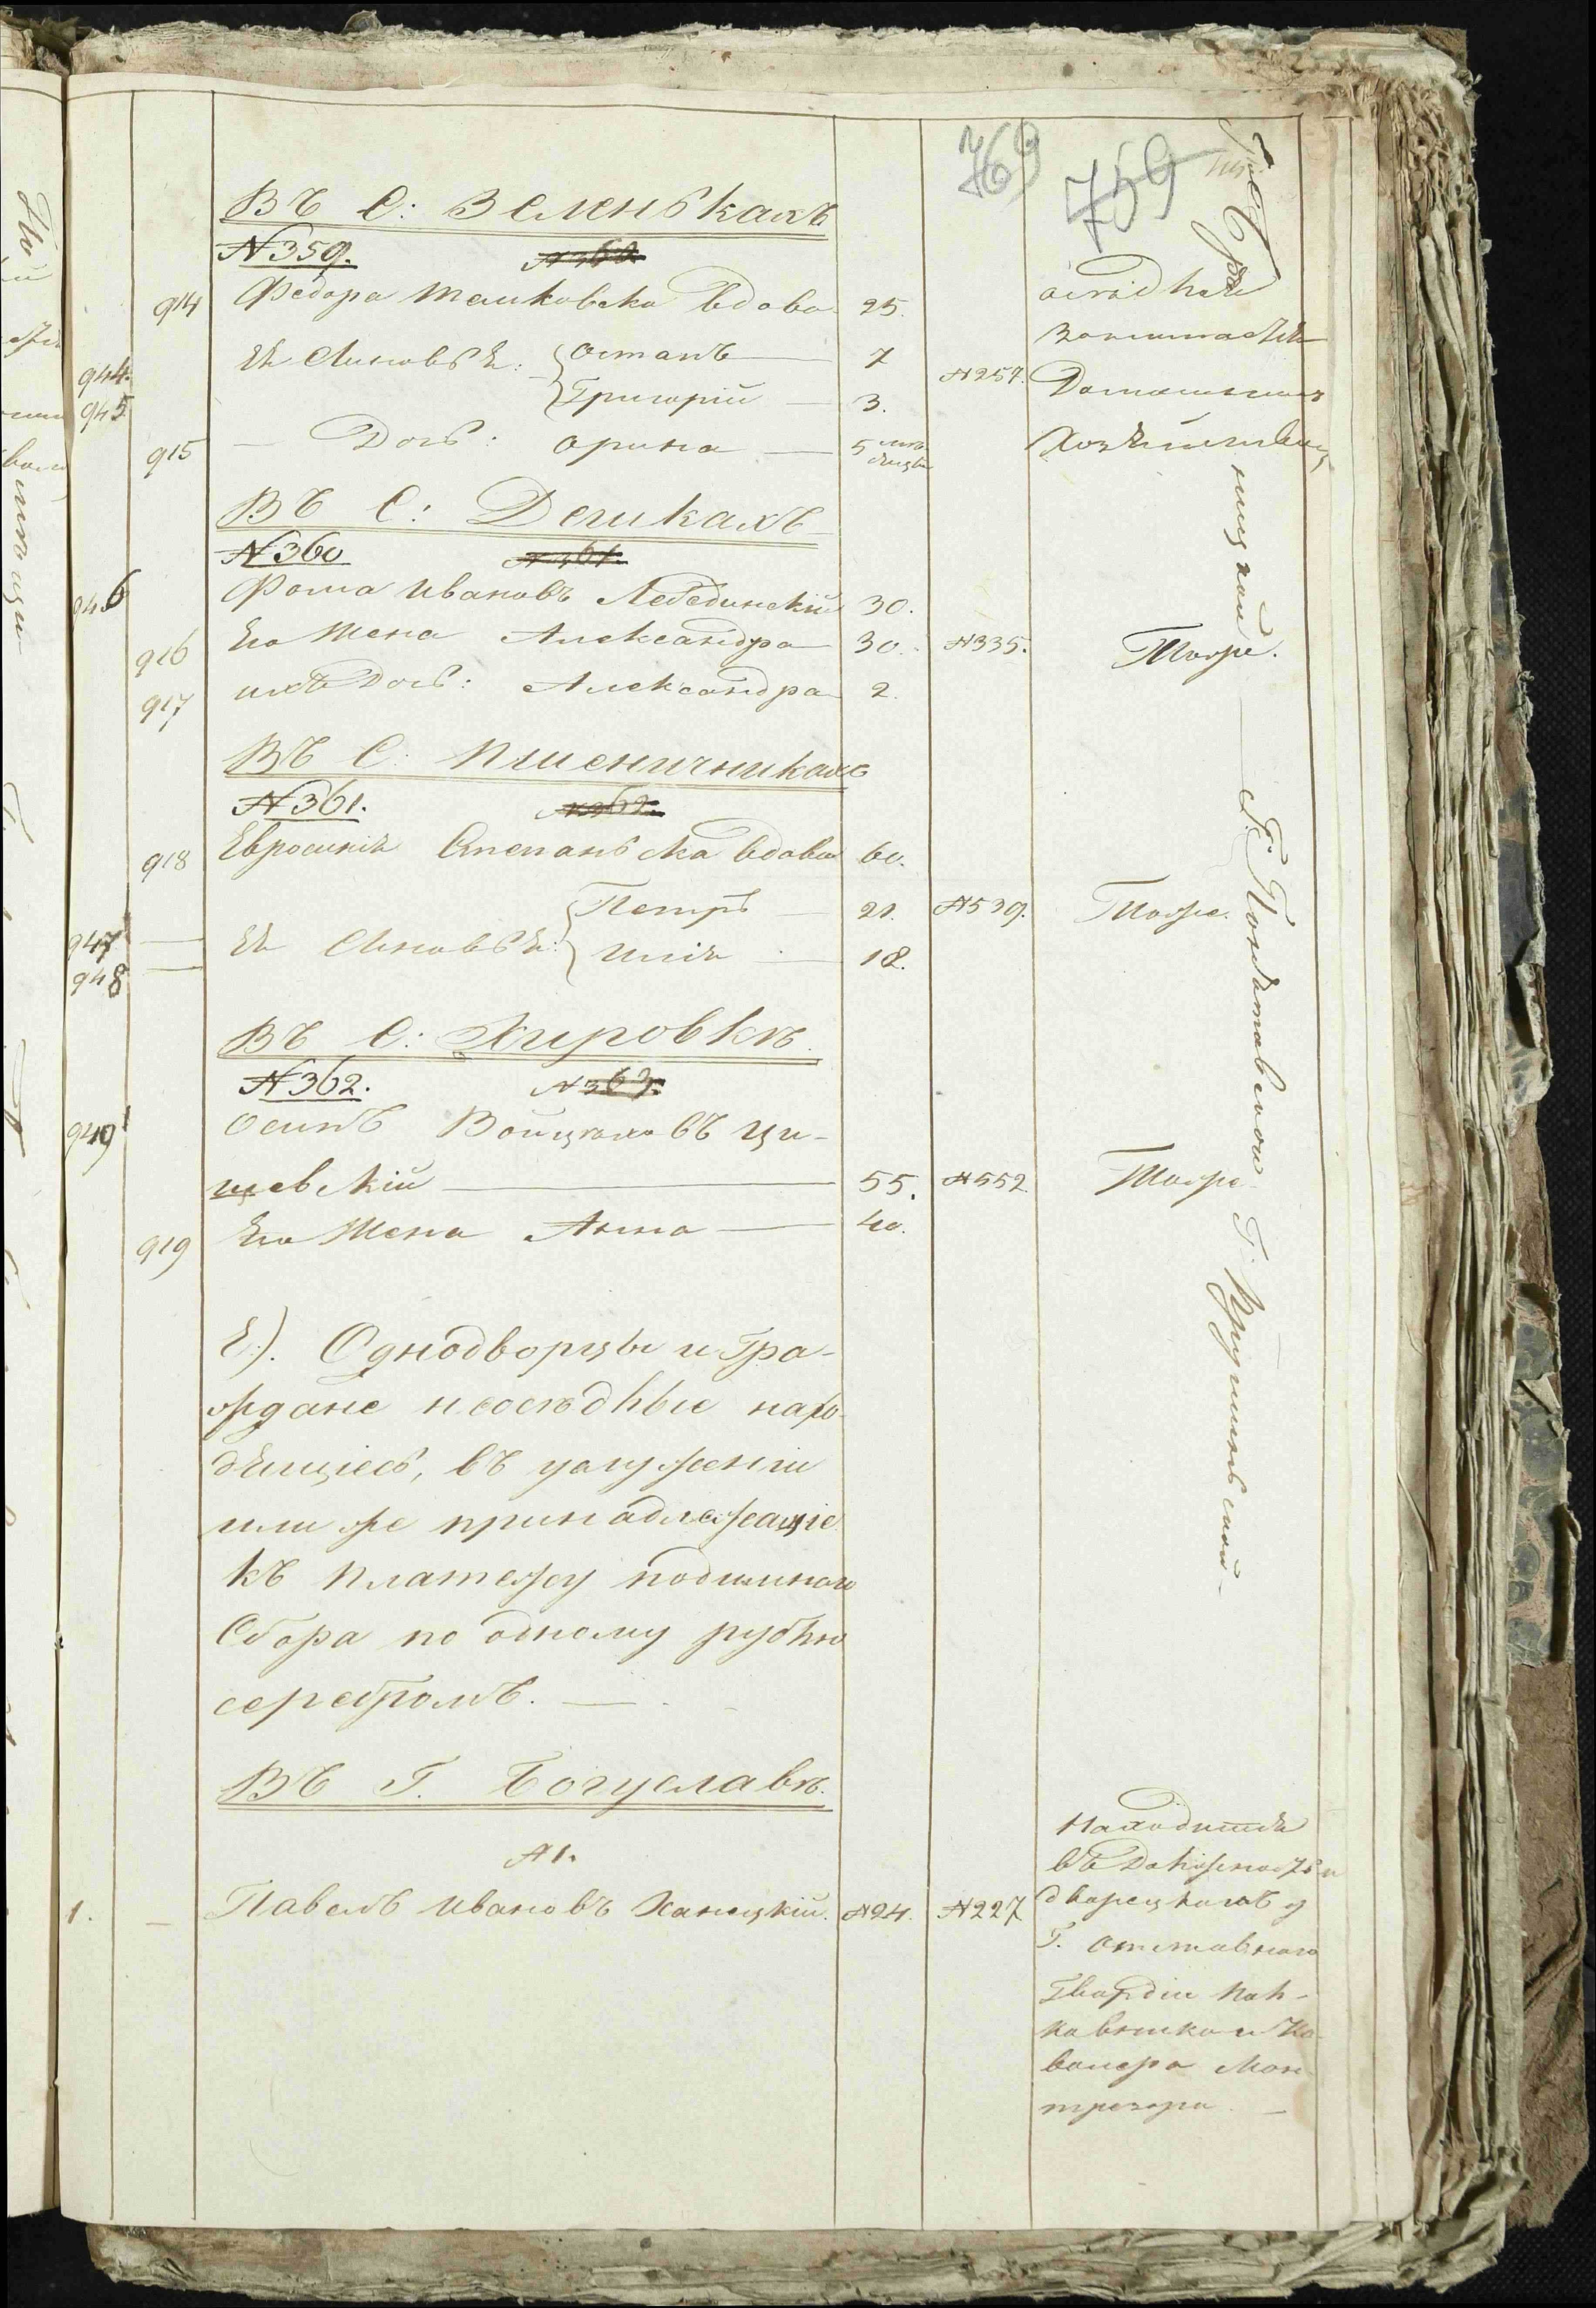 769 759
Въ С: Зеленькахъ
№359. №360.
914 Федора Машковска вдова 25.
944. Ея Сыновья: Остапъ 7 №257.
945 Григорій 3.
915 Дочь: Орина 5 мѣсяцевъ
занимается
Домашнимъ
Хозяйствомъ
Въ С: Дешкахъ
№360 №361.
946 Фома Ивановъ Лебединскій 30.
916 Его Жена Александра 30. №335. Тоже.
917 ихъ Дочь: Александра 2.
Въ С: Пшеничникахъ
№361. №362.
918 Евросинія Степанська вдова 60.
947 Ея Сыновья: Петръ 21. №539. Тоже.
948 Илія 18.
Въ С: Хировкѣ
№362. №363.
949 Осипъ Войцеховъ Ци-
шевскій 55. №552 Тоже
919 Его Жена Анна 40.
Е). Однодворцы и Гра-
ждане неосѣдлые нахо-
дящіесь, въ услуженіи
или же принадлежащіе
къ платежу подымнаго
Сбора по одному рублю
серебромъ.
Въ Г. Богуславѣ.
№1.
1. Павелъ Ивановъ Ханецкій. №24. №227
Находится
въ Должности
дворецкаго у
Г. Отставнаго
Гвардіи Пол-
ковника и Ка-
валера Мон-
трезора